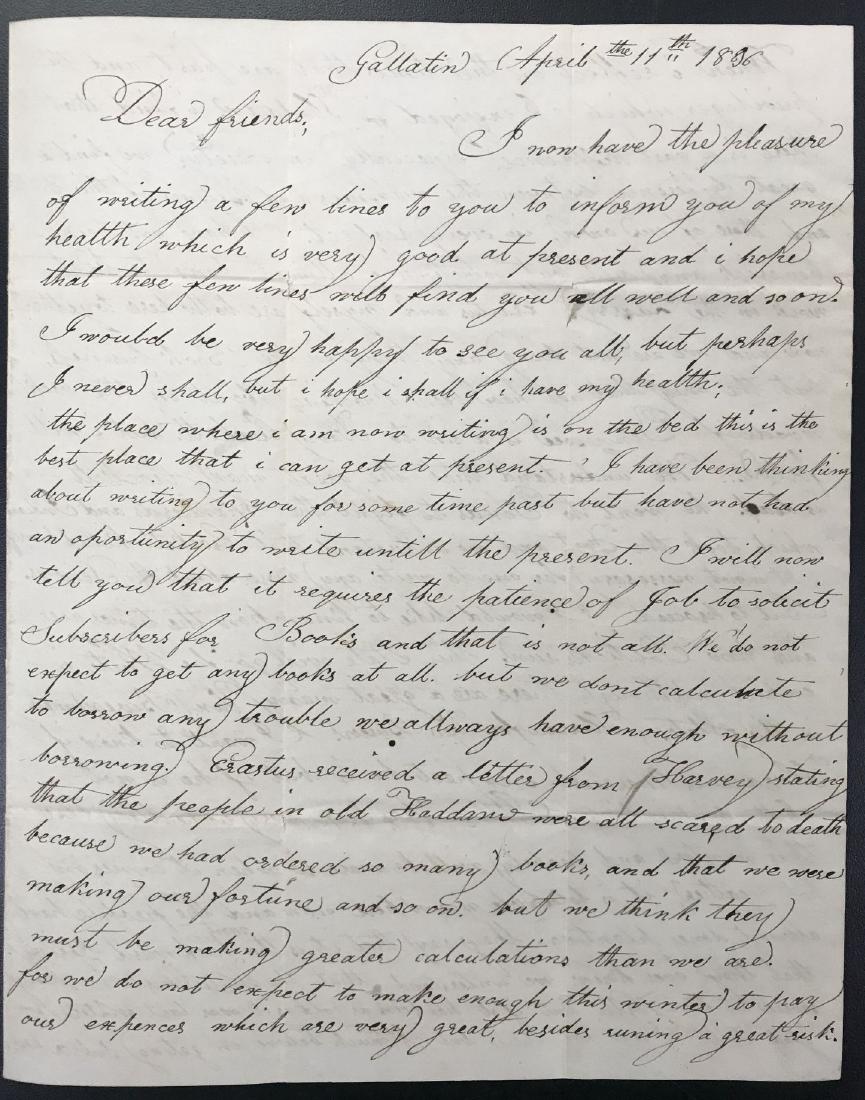 Gallatin April the 11th 1836
Dear friends;
I now have the pleasure
of writing a few lines to you to inform you of my
health which is very good at present and i hope
that these few lines will find you all well and so on.
I would be very happy to see you all, but perhaps
I never shall, but i hope i shall if i have my health;
the place where i am now writing is on the bed this is the
best place that i can get at present. I have been thinking
about writing to you for some time past but have not had
an oportunity to write untill the present. I will now
tell you that it requires the patience of Job to solicit
Subscribers for Books and that is not all. We do not
expect to get any books at all. but we dont calculate
to borrow any trouble we allways have enough without
borrowing. Erastus received a letter from Harvey stating
that the people in old Haddam were all scared to death
because we had ordered so many books, and that we were
making our fortune and so on. but we think they
must be making greater calculations than we are.
for we do not expect to make enough this winter to pay
our expences which are very great, besides runing a great risk.